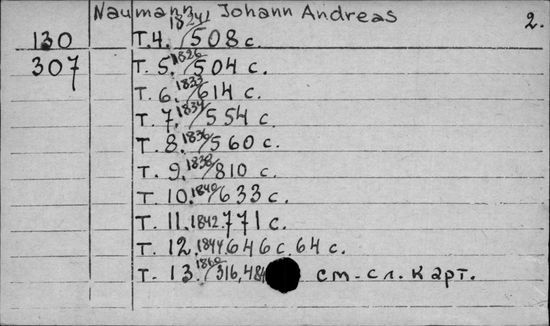 Naumann Johann Andreas 2.
130 Т.4. 1824/508 с.
307 Т. 5. 1826/504 с.
Т. 6. 1833/614 с.
Т. 7. 1834/554 с.
Т. 8. 1836/560 с.
Т. 9. 1838/810 с.
Т. 10. 1840/633 с.
Т. 11. 1842. 771 с.
Т. 12. 1844. 646 с. 64 с.
Т. 13. 1860/316, 484 см. сл. карт.